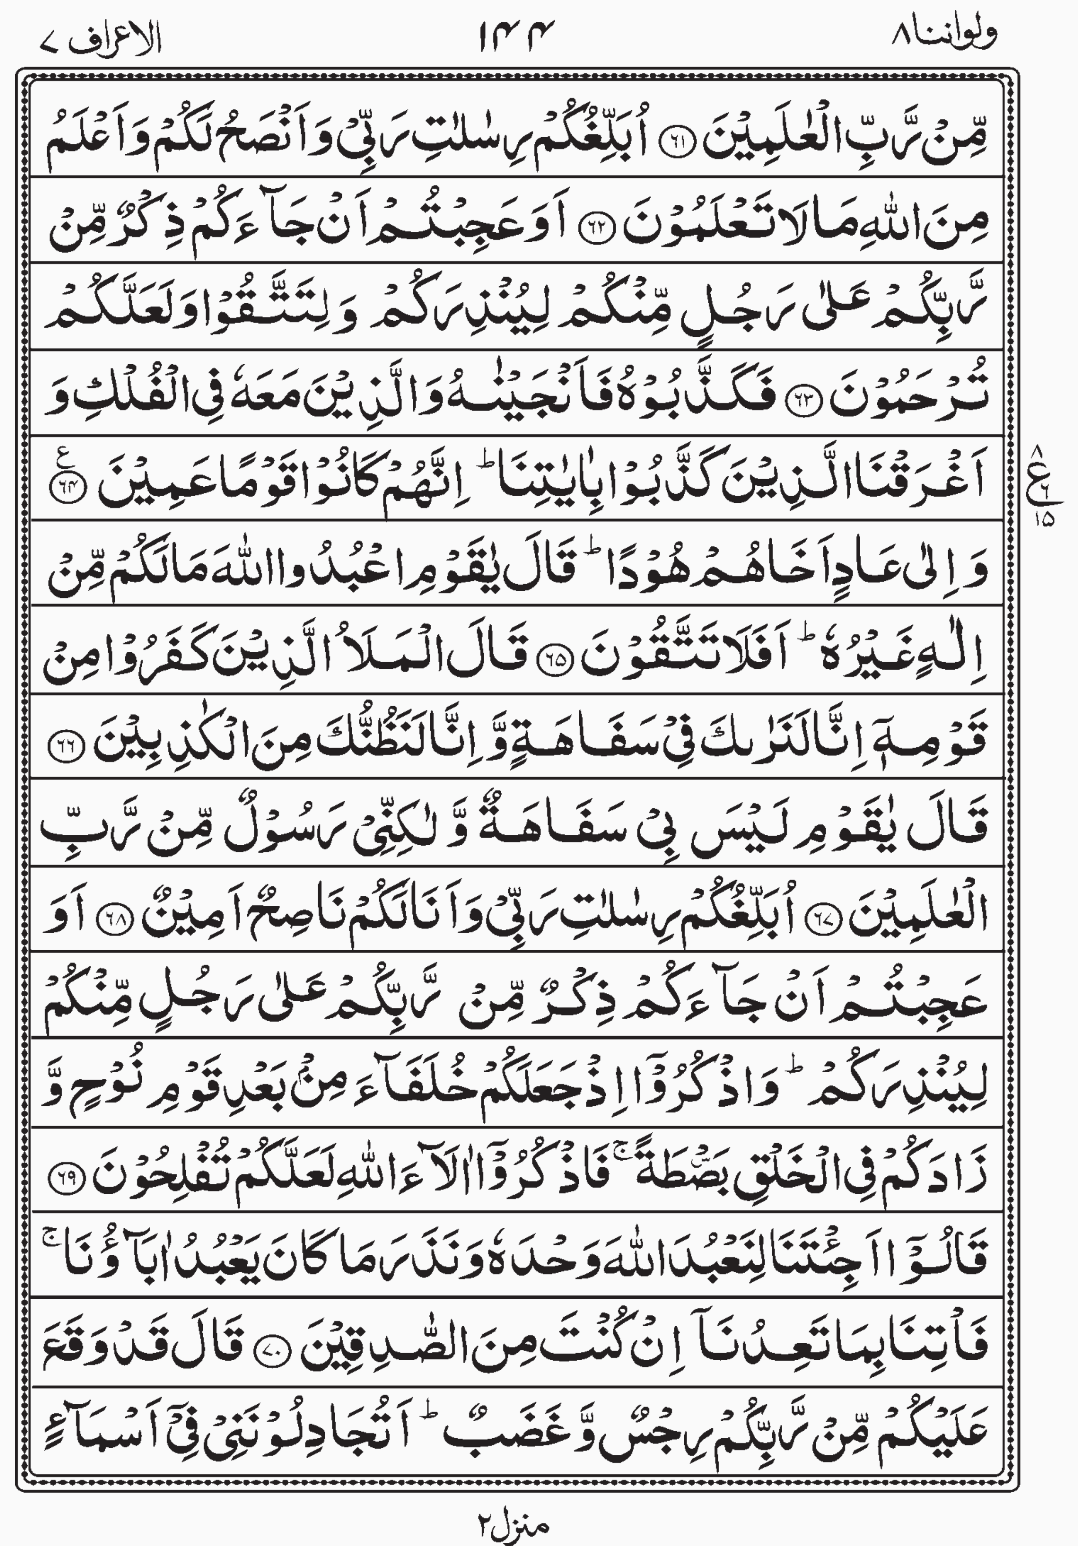 ولواننا ۸ ۱۴۴ الاعراف ۷
مِّنْ رَّبِّ الْعٰلَمِيْنَ ﴿۶۱﴾ اُبَلِّغُكُمْ رِسٰلٰتِ رَبِّيْ وَاَنْصَحُ لَكُمْ وَاَعْلَمُ
مِنَ اللّٰهِ مَا لَا تَعْلَمُوْنَ ﴿۶۲﴾ اَوَعَجِبْتُمْ اَنْ جَآءَكُمْ ذِكْرٌ مِّنْ
رَّبِّكُمْ عَلٰى رَجُلٍ مِّنْكُمْ لِيُنْذِرَكُمْ وَلِتَتَّقُوْا وَلَعَلَّكُمْ
تُرْحَمُوْنَ ﴿۶۳﴾ فَكَذَّبُوْهُ فَاَنْجَيْنٰهُ وَالَّذِيْنَ مَعَهٗ فِي الْفُلْكِ وَ
اَغْرَقْنَا الَّذِيْنَ كَذَّبُوْا بِاٰيٰتِنَا ؕ اِنَّهُمْ كَانُوْا قَوْمًا عَمِيْنَ ﴿۶۴﴾ ع
۸ ع ۶ ۱۵
وَاِلٰى عَادٍ اَخَاهُمْ هُوْدًا ؕ قَالَ يٰقَوْمِ اعْبُدُوا اللّٰهَ مَا لَكُمْ مِّنْ
اِلٰهٍ غَيْرُهٗ ؕ اَفَلَا تَتَّقُوْنَ ﴿۶۵﴾ قَالَ الْمَلَاُ الَّذِيْنَ كَفَرُوْا مِنْ
قَوْمِهٖٓ اِنَّا لَنَرٰىكَ فِيْ سَفَاهَةٍ وَّاِنَّا لَنَظُنُّكَ مِنَ الْكٰذِبِيْنَ ﴿۶۶﴾
قَالَ يٰقَوْمِ لَيْسَ بِيْ سَفَاهَةٌ وَّلٰكِنِّيْ رَسُوْلٌ مِّنْ رَّبِّ
الْعٰلَمِيْنَ ﴿۶۷﴾ اُبَلِّغُكُمْ رِسٰلٰتِ رَبِّيْ وَاَنَا لَكُمْ نَاصِحٌ اَمِيْنٌ ﴿۶۸﴾ اَوَ
عَجِبْتُمْ اَنْ جَآءَكُمْ ذِكْرٌ مِّنْ رَّبِّكُمْ عَلٰى رَجُلٍ مِّنْكُمْ
لِيُنْذِرَكُمْ ؕ وَاذْكُرُوْٓا اِذْ جَعَلَكُمْ خُلَفَآءَ مِنْۢ بَعْدِ قَوْمِ نُوْحٍ وَّ
زَادَكُمْ فِي الْخَلْقِ بَصْۜطَةً ۚ فَاذْكُرُوْٓا اٰلَآءَ اللّٰهِ لَعَلَّكُمْ تُفْلِحُوْنَ ﴿۶۹﴾
قَالُوْٓا اَجِئْتَنَا لِنَعْبُدَ اللّٰهَ وَحْدَهٗ وَنَذَرَ مَا كَانَ يَعْبُدُ اٰبَآؤُنَا ۚ
فَاْتِنَا بِمَا تَعِدُنَآ اِنْ كُنْتَ مِنَ الصّٰدِقِيْنَ ﴿۷۰﴾ قَالَ قَدْ وَقَعَ
عَلَيْكُمْ مِّنْ رَّبِّكُمْ رِجْسٌ وَّغَضَبٌ ؕ اَتُجَادِلُوْنَنِيْ فِيْٓ اَسْمَآءٍ
منزل ۲